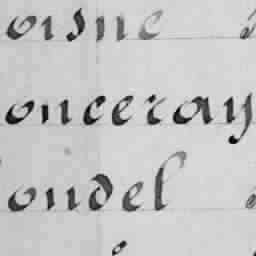 oisne
onceray
ondel